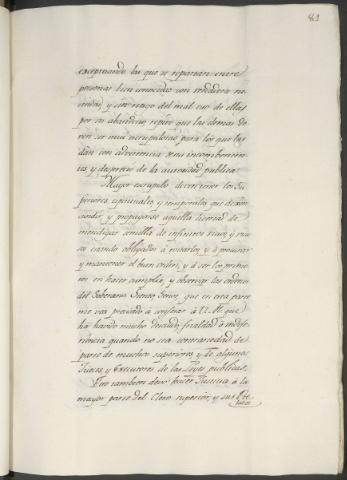 81
exceptuando las que se reparten entre
personas bien conocidas con verdadera ne-
cesidad, y sin riesgo del mal uso de ellas
por su abandono, repito que las demas de-
ven ser mui escrupulosas para los que las
dan con advertencia a sus inconbenien-
tes, y desprecio de la autoridad publica.
Mayor escrupulo deven tener los Su-
periores espirituales, y temporales que dexan
cundir, y propagarse aquella livertad de
mendigar semilla de infinitos males, y vicios
estando obligados a evitarlos, y a promover
y mantener el buen orden, y a ser los prime-
ros en hacer cumplir, y observar las ordenes
del Soberano. Señor, Señor, que en esta parte
me veo precisado a confesar a V. M. que
ha havido mucho descuido, frialdad e indife-
rencia quando no sea contrariedad de
parte de muchos superiores, y de algunos
Jueces, y Executores de las Leyes publicas.
Pero tambien devo hacer Justicia a la
mayor parte del Clero superior, y sus Pre-
lados